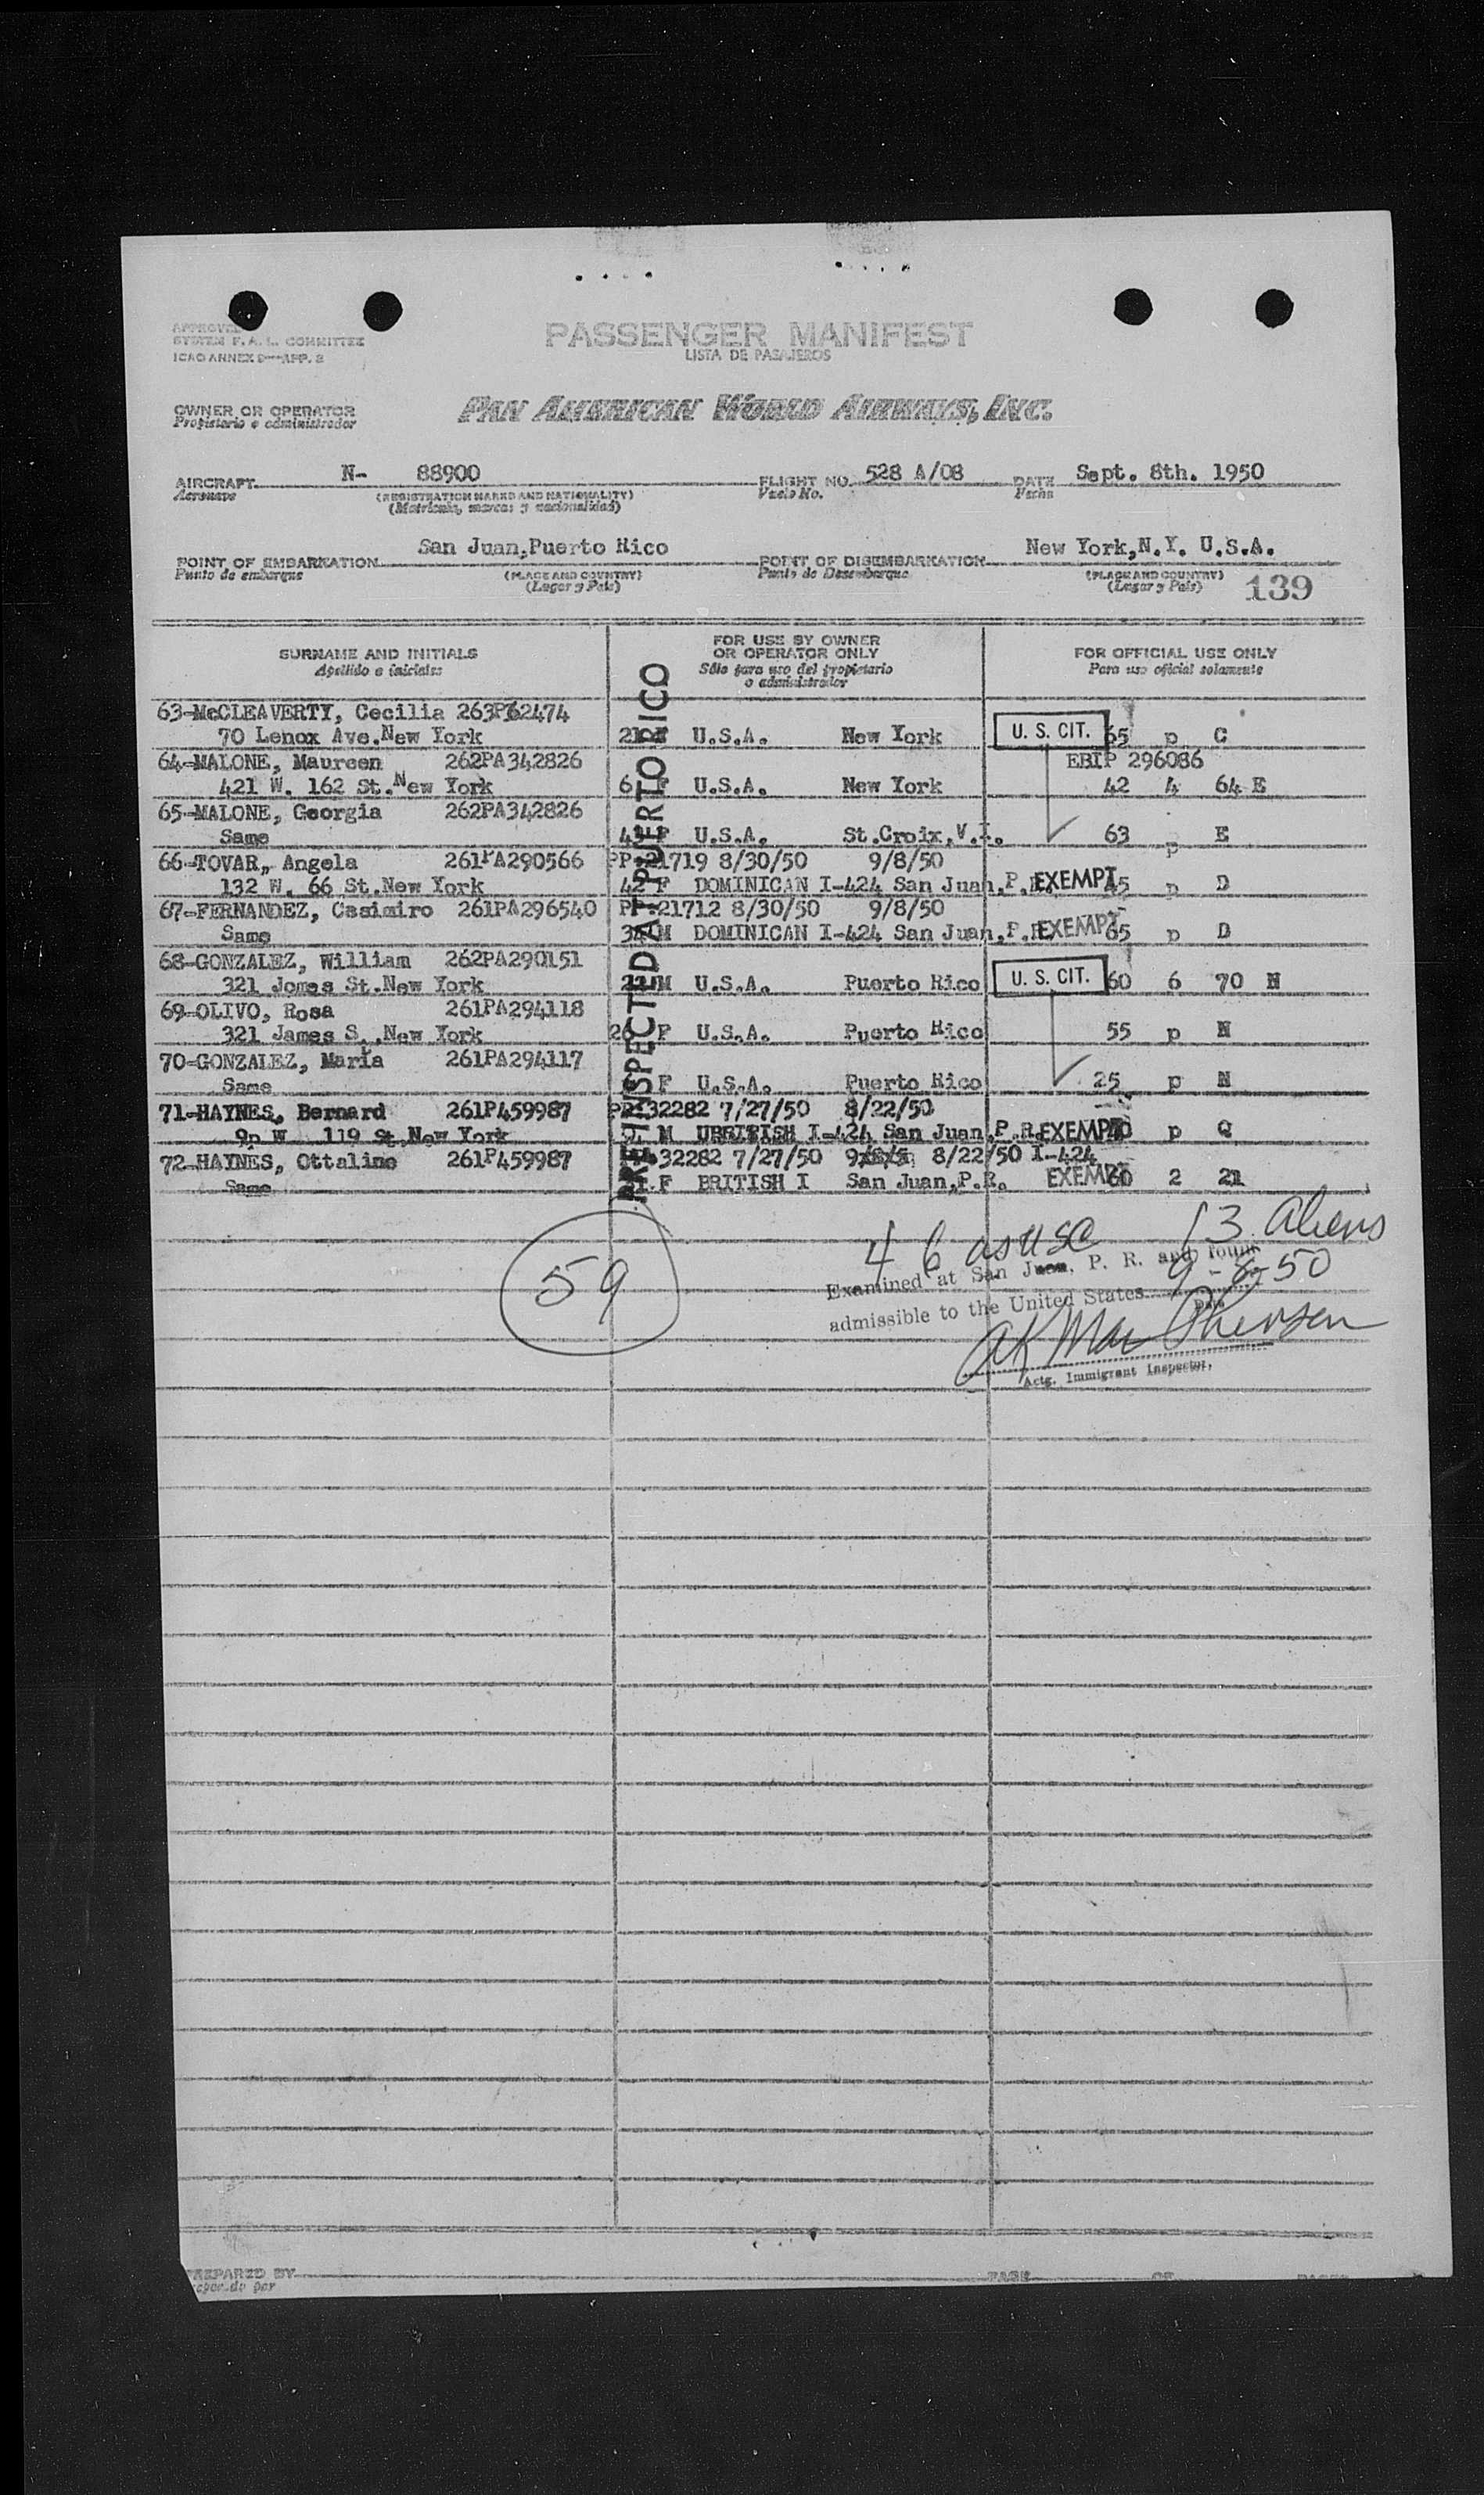 APPROVED
SYSTEM F. A. L. COMMITTEE
ICAO ANNEX 9—APP. 2
PASSENGER MANIFEST
LISTA DE PASAJEROS
OWNER OR OPERATOR
Propietario o administrador
PAN AMERICAN WORLD AIRWAYS, INC.
AIRCRAFT N- 88900 FLIGHT NO. 528 A/08 DATE Sept. 8th. 1950
Aeronave (REGISTRATION MARKS AND NATIONALITY) Vuelo No. Fecha
(Matricula, marcas y nacionalidad)
POINT OF EMBARKATION San Juan,Puerto Rico POINT OF DISEMBARKATION New York,N.Y. U.S.A.
Punto de embarque (PLACE AND COUNTRY) Punto de Desembarque (PLACE AND COUNTRY)
(Lugar y Pais) (Lugar y Pais) 139
SURNAME AND INITIALS
Apellido e iniciales
FOR USE BY OWNER
OR OPERATOR ONLY
Sólo para uso del propietario
o administrador
FOR OFFICIAL USE ONLY
Para uso oficial solamente
PRE-INSPECTED AT PUERTO RICO
63-McCLEAVERTY, Cecilia
70 Lenox Ave.New York U.S.A. New York U. S. CIT. 65 p C
64-MALONE, Maureen 262PA342826 EBIP 296086
421 W. 162 St.New York 6 F U.S.A. New York 42 4 64 E
65-MALONE, Georgia 262PA342826
Same F U.S.A. St.Croix,V.I. 63 p E
66-TOVAR, Angela 261PA290566 21719 8/30/50 9/8/50
132 W. 66 St.New York 42 F DOMINICAN I-424 San Juan,P.R. EXEMPT 45 p D
67-FERNANDEZ, Casimiro 261PA296540 21712 8/30/50 9/8/50
Same M DOMINICAN I-424 San Juan,P.R. EXEMPT 65 p D
68-GONZALEZ, William 262PA290151
321 James St.New York M U.S.A. Puerto Rico U. S. CIT. 60 6 70 N
69-OLIVO, Rosa 261PA294118
321 James S.,New York F U.S.A. Puerto Rico 55 p N
70-GONZALEZ, Maria 261PA294117
Same F U.S.A. Puerto Rico 25 p N
71-HAYNES, Bernard 261P459987 32282 7/27/50 8/22/50
W 119 St.New York M BRITISH I-424 San Juan,P.R. EXEMPT p Q
72-HAYNES, Ottaline 261P459987 32282 7/27/50 8/22/50 I-424
Same F BRITISH I San Juan,P.R. EXEMPT 60 2 21
59
46 as USC 13 Aliens
Examined at San Juan, P. R. and found
admissible to the United States 9-8-50
Date
AK MacPherson
Actg. Immigrant Inspector.
PREPARED BY PAGE OF PAGES
Preparado por